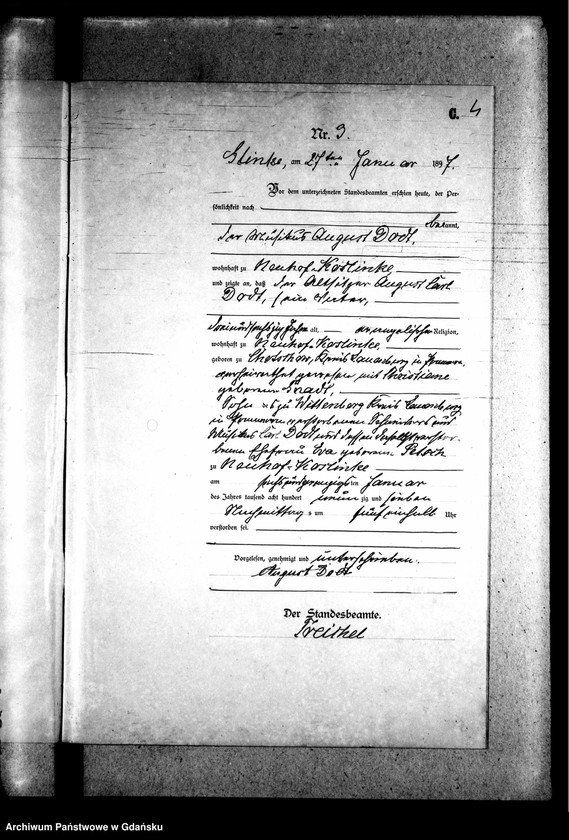 C. 4
Nr. 3.
Glinke, am 27ten Januar 1897.
Vor dem unterzeichneten Standesbeamten erschien heute, der Per-
sönlichkeit nach
bekannt,
der Musikus August Dodt,
wohnhaft zu Neuhof-Koslinke
und zeigte an, daß der Altsitzer August Carl
Dodt, sein Vater,
dreiundsechszig Jahre alt, evangelischer Religion,
wohnhaft zu Neuhof-Koslinke
geboren zu Kreis Lauenburg in Pommern,
verheirathet gewesen mit Christiane
geborenen
Sohn des zu Wittenberg Kreis Lauenburg
in Pommern verstorbenen und
Musikus Carl Dodt und dessen daselbst verstor-
benen Ehefrau Eva geborenen
zu Neuhof-Koslinke
am sechsundzwanzigsten Januar
des Jahres tausend acht hundert neunzig und sieben
Nachmittags um fünf einhalb Uhr
verstorben sei.
Vorgelesen, genehmigt und unterschrieben.
August Dodt
Der Standesbeamte.
Treichel
Archiwum Państwowe w Gdańsku